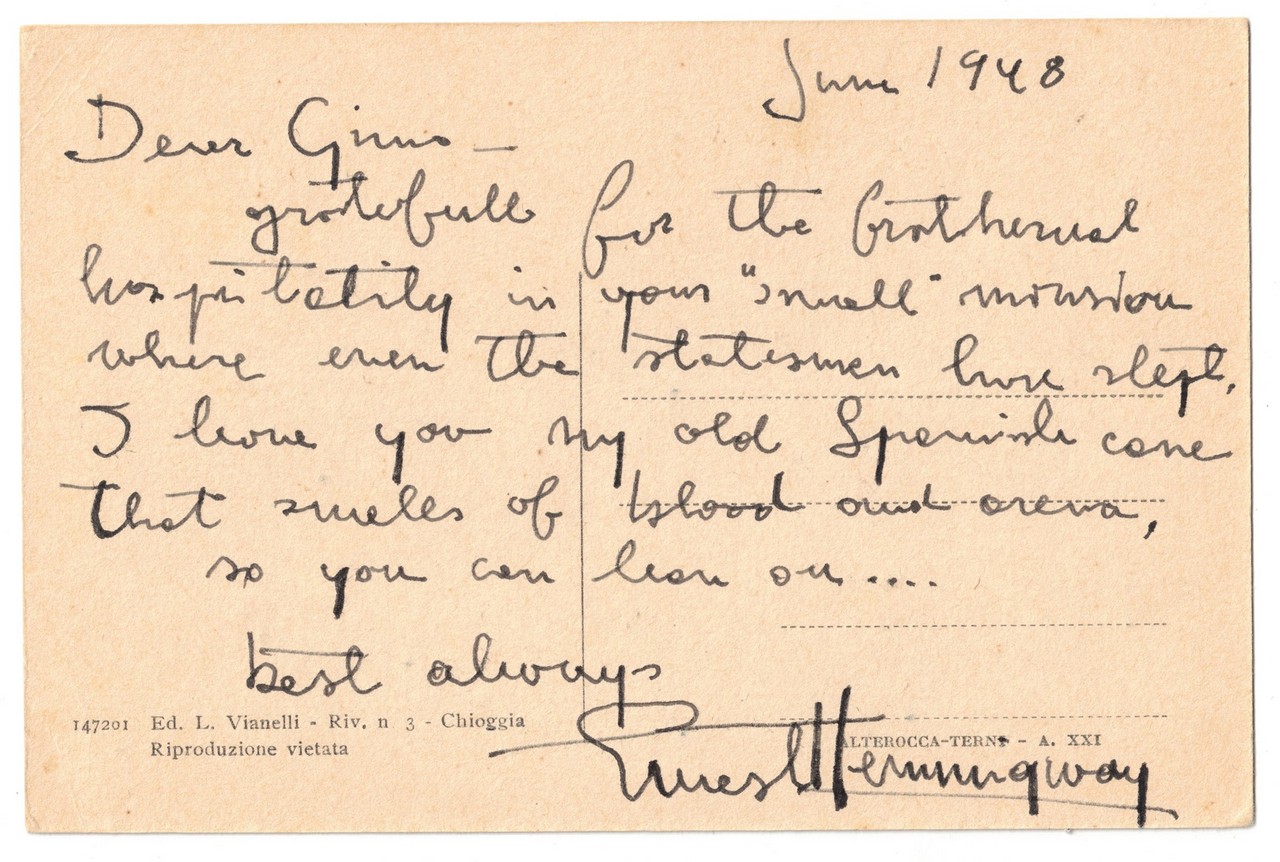 June 1948
Dear Gino -
gratefull for the brothernal
hospitatily in your "small" mansion
where even the statesmen have slept,
I leave you my old Spanish cane
that smells of blood and arena,
so you can lean on....
best always
Ernest Hemingway
147201 Ed. L. Vianelli - Riv. n 3 - Chioggia
Riproduzione vietata
ALTEROCCA-TERNI - A. XXI